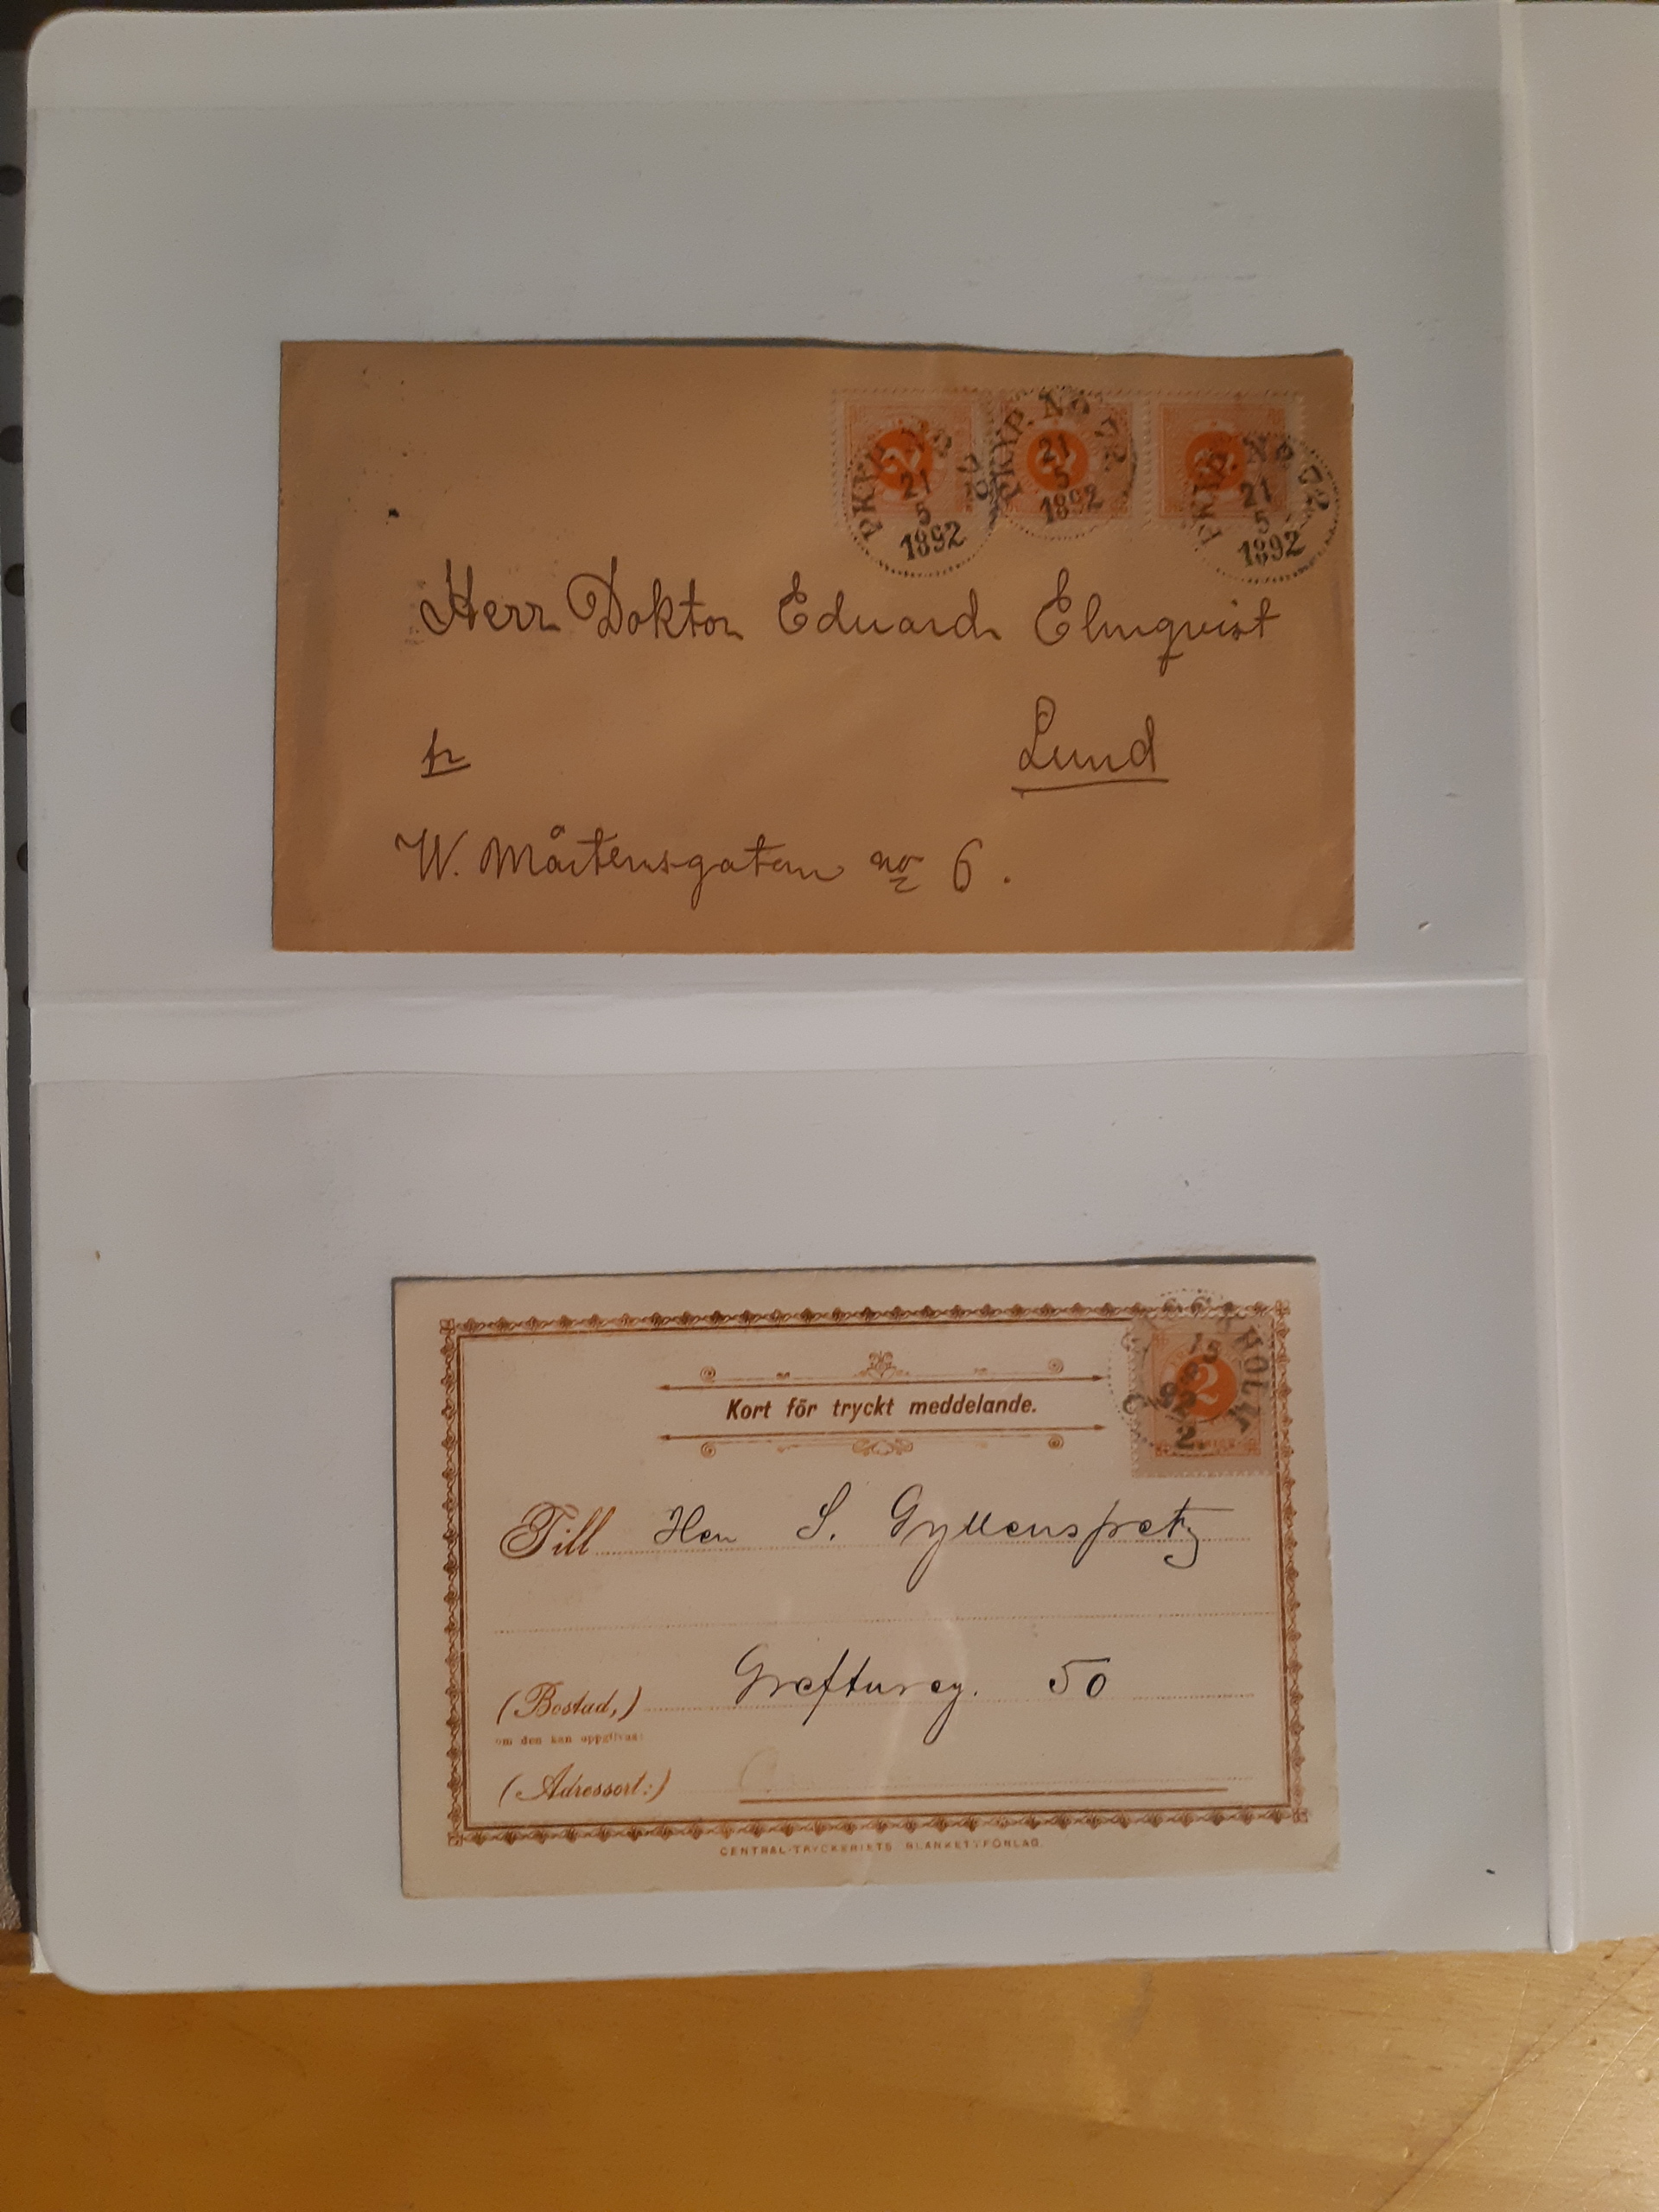 PKXP. No 72
21
5
1892
PKXP. No 72
21
5
1892
PKXP. No 72
21
5
1892
Herr Doktor Eduard Elmqvist
Lund
W. Mårtensgatan no 6.
2
Kort för tryckt meddelande.
Till Herr S. Gyllenspetz
(Bostad,) Greftureg. 50
om den kan uppgifvas:
(Adressort:)
CENTRAL-TRYCKERIETS BLANKETTFÖRLAG.